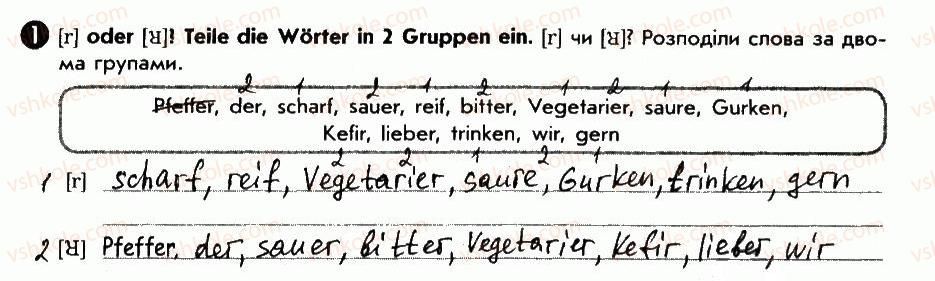 1 [r] oder [ʁ]! Teile die Wörter in 2 Gruppen ein. [r] чи [ʁ]? Розподіли слова за дво-
ма групами.
2 1 2 1 2 1 2 1 1
Pfeffer, der, scharf, sauer, reif, bitter, Vegetarier, saure, Gurken,
Kefir, lieber, trinken, wir, gern
2 2 1 2 1
1 [r] scharf, reif, Vegetarier, saure, Gurken, trinken, gern
2 [ʁ] Pfeffer, der, sauer, bitter, Vegetarier, Kefir, lieber, wir